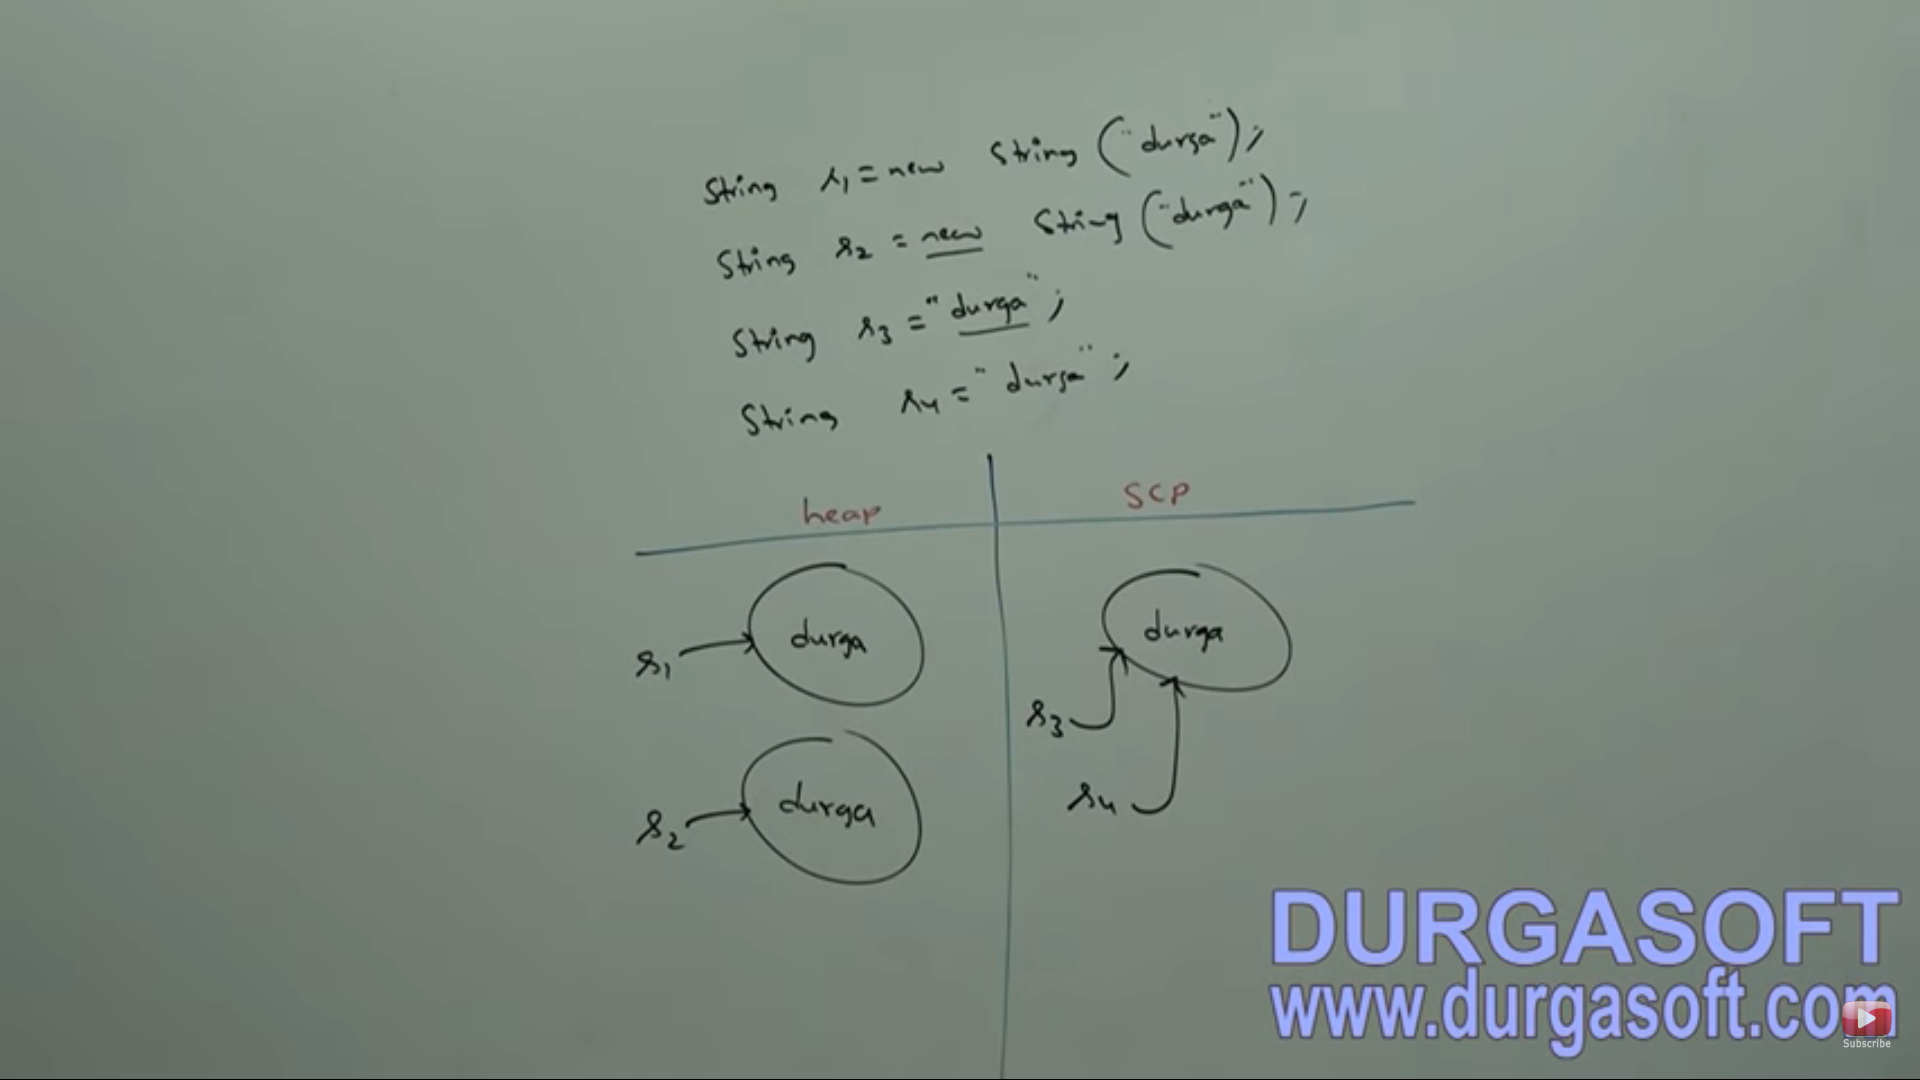 String s1 = new String ("durga");
String s2 = new String ("durga");
String s3 = "durga";
String s4 = "durga";
heap
SCP
durga
durga
s1
s3
durga
s4
s2
DURGASOFT
www.durgasoft.com
Subscribe